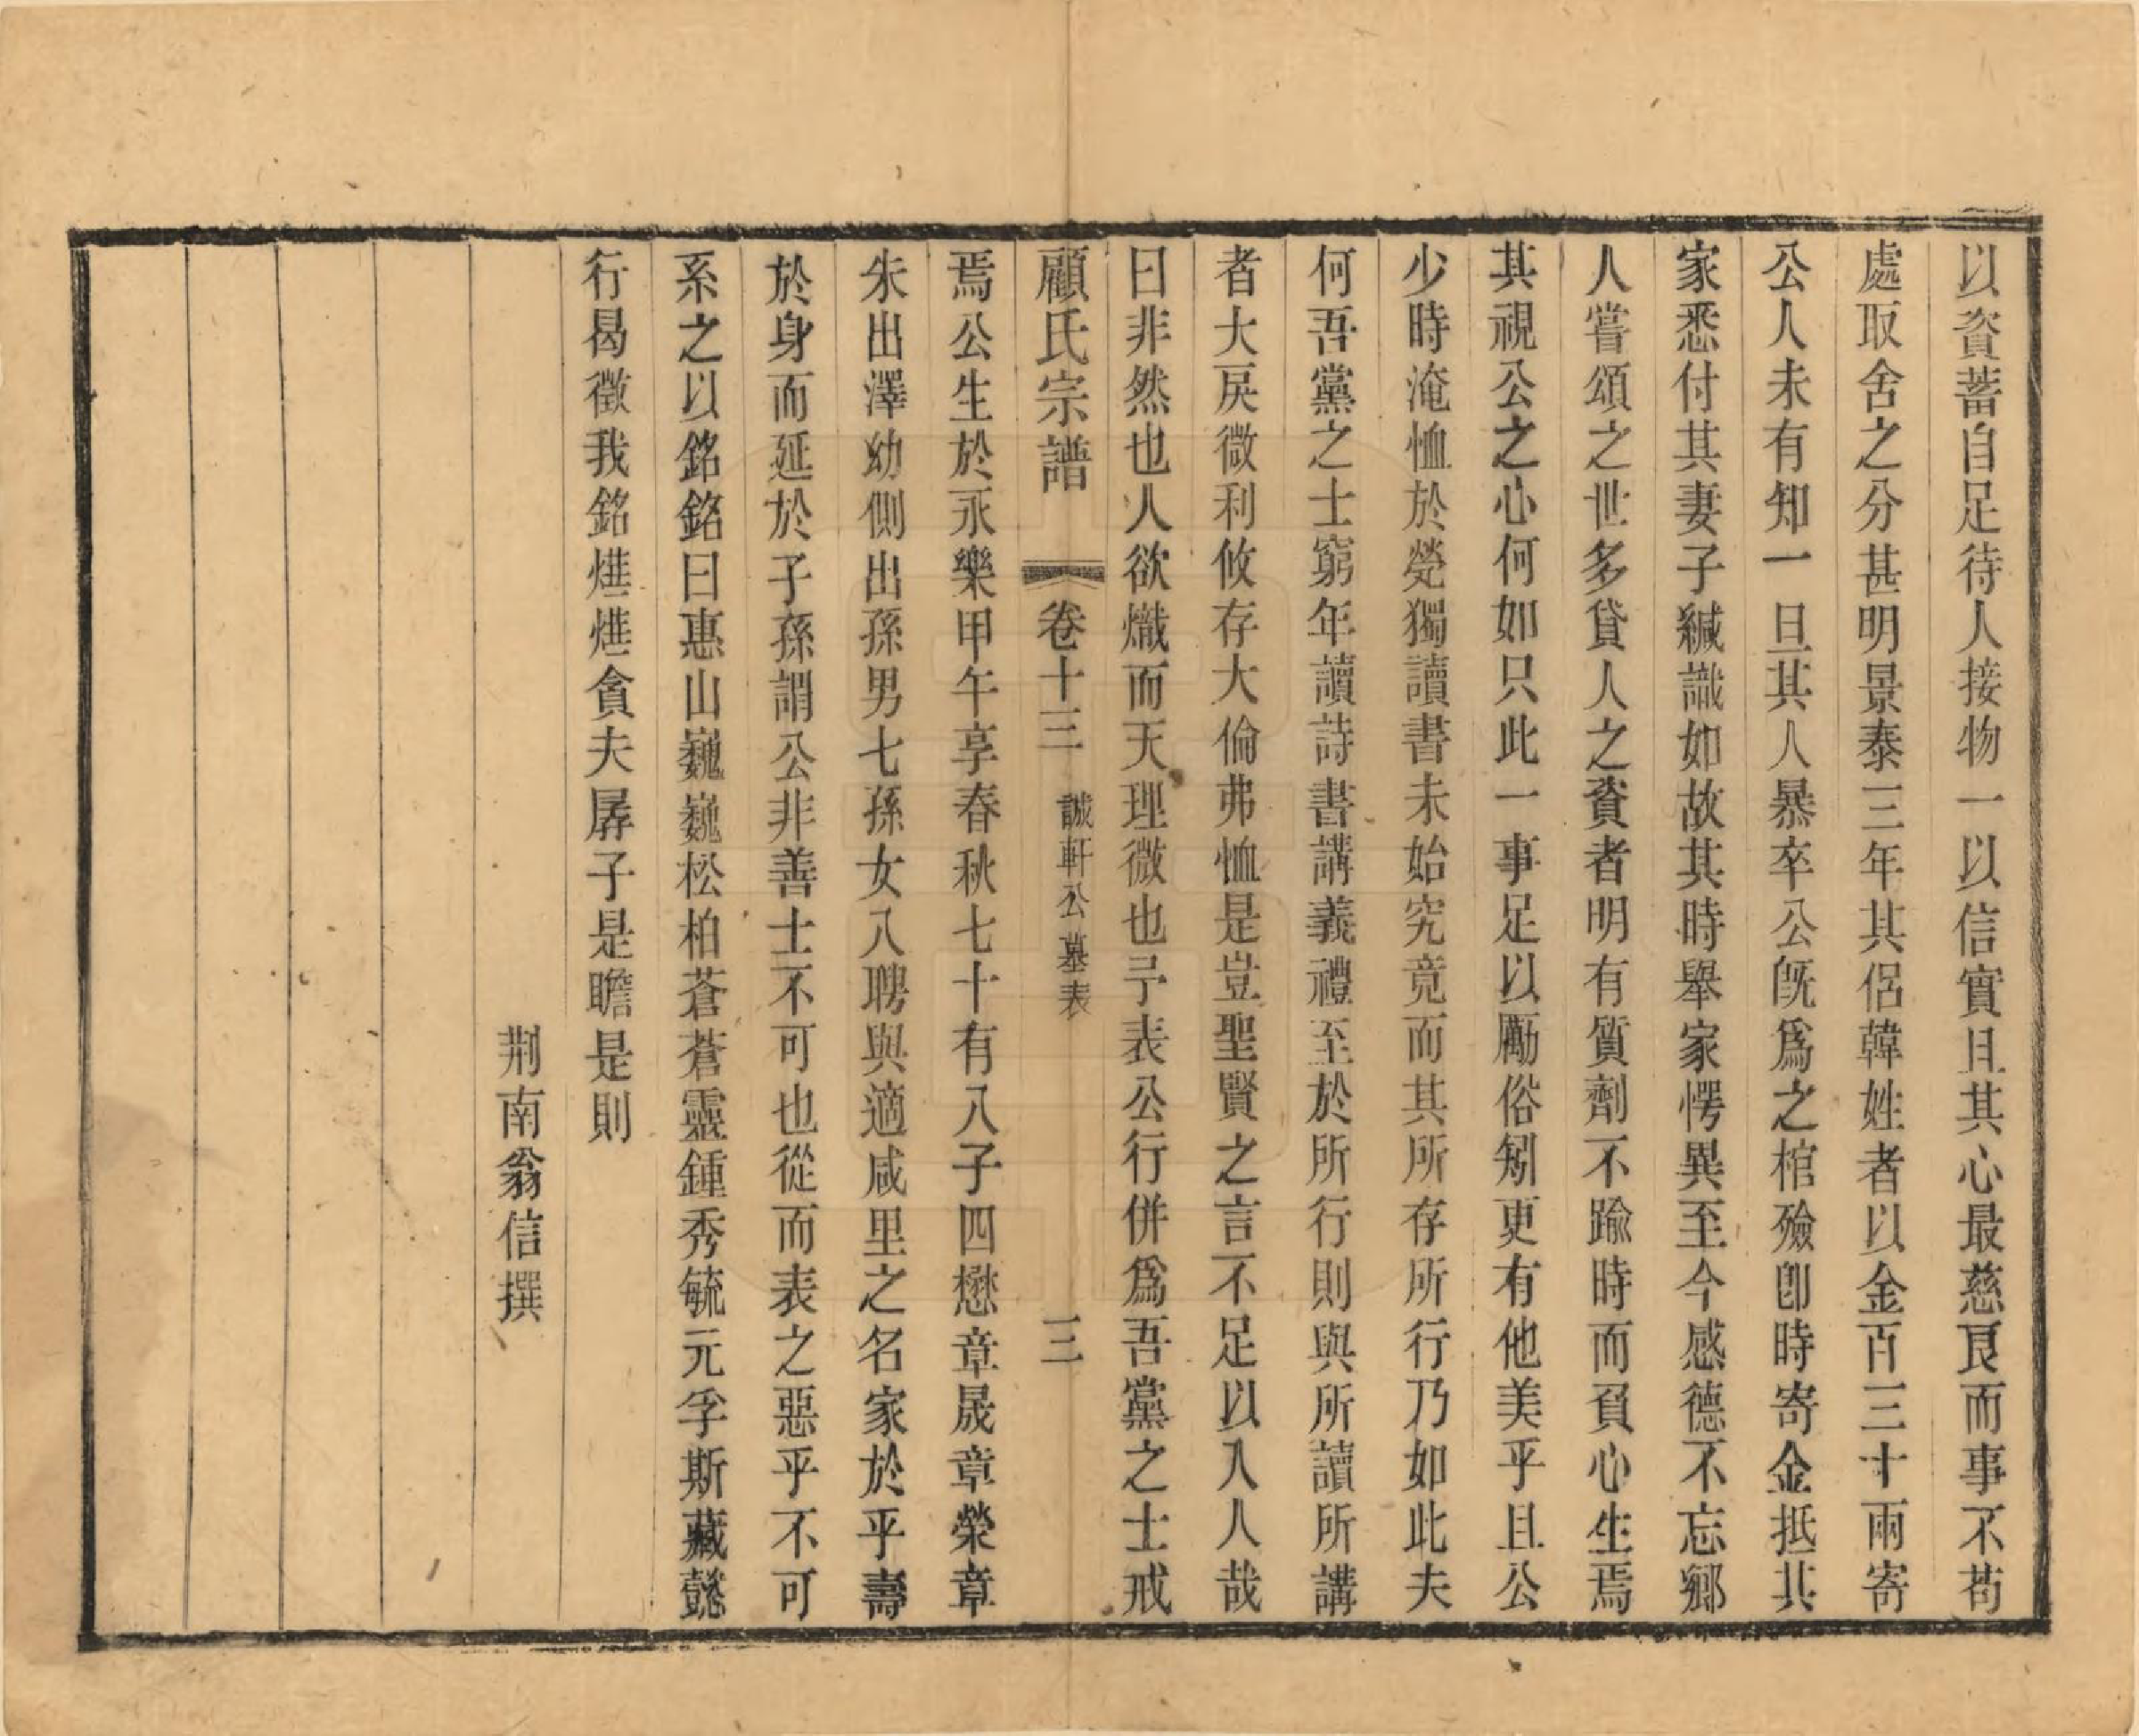 以資蓄自足待人接物一以信實且其心最慈良而事不苟
處取舍之分甚明景泰三年其侶韓姓者以金百三十兩寄
公人未有知一旦其人暴卒公旣爲之棺殮卽時寄金抵其
家悉付其妻子緘識如故其時舉家愕異至今感德不忘鄉
人嘗頌之世多貸人之資者明有質劑不踰時而負心生焉
其視公之心何如只此一事足以勵俗矧更有他美乎且公
少時淹恤於煢獨讀書未始究竟而其所存所行乃如此夫
何吾黨之士窮年讀詩書講義禮至於所行則與所讀所講
者大戾微利攸存大倫弗恤是豈聖賢之言不足以入人哉
曰非然也人欲熾而天理微也予表公行併爲吾黨之士戒
顧氏宗譜 卷十三 誠軒公墓表 三
焉公生於永樂甲午享春秋七十有八子四懋章晟章榮章
朱出澤幼側出孫男七孫女八聘與適咸里之名家於乎壽
於身而延於子孫謂公非善士不可也從而表之惡乎不可
系之以銘銘曰惠山巍巍松柏蒼蒼靈鍾秀毓元孚斯藏懿
行曷徵我銘煒煒貪夫孱子是瞻是則
荆南翁信撰